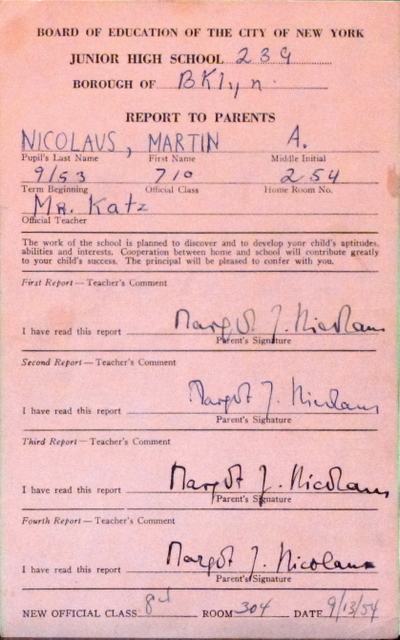 BOARD OF EDUCATION OF THE CITY OF NEW YORK
JUNIOR HIGH SCHOOL 239
BOROUGH OF BKlyn.
REPORT TO PARENTS
NICOLAUS, MARTIN A.
Pupil's Last Name First Name Middle Initial
9/53 710 254
Term Beginning Official Class Home Room No.
MR. Katz
Official Teacher
The work of the school is planned to discover and to develop your child's aptitudes,
abilities and interests. Cooperation between home and school will contribute greatly
to your child's success. The principal will be pleased to confer with you.
First Report — Teacher's Comment
I have read this report Margot J. Nicolaus
Parent's Signature
Second Report — Teacher's Comment
I have read this report Margot J. Nicolaus
Parent's Signature
Third Report — Teacher's Comment
I have read this report Margot J. Nicolaus
Parent's Signature
Fourth Report — Teacher's Comment
I have read this report Margot J. Nicolaus
Parent's Signature
NEW OFFICIAL CLASS ROOM 304 DATE 9/13/54